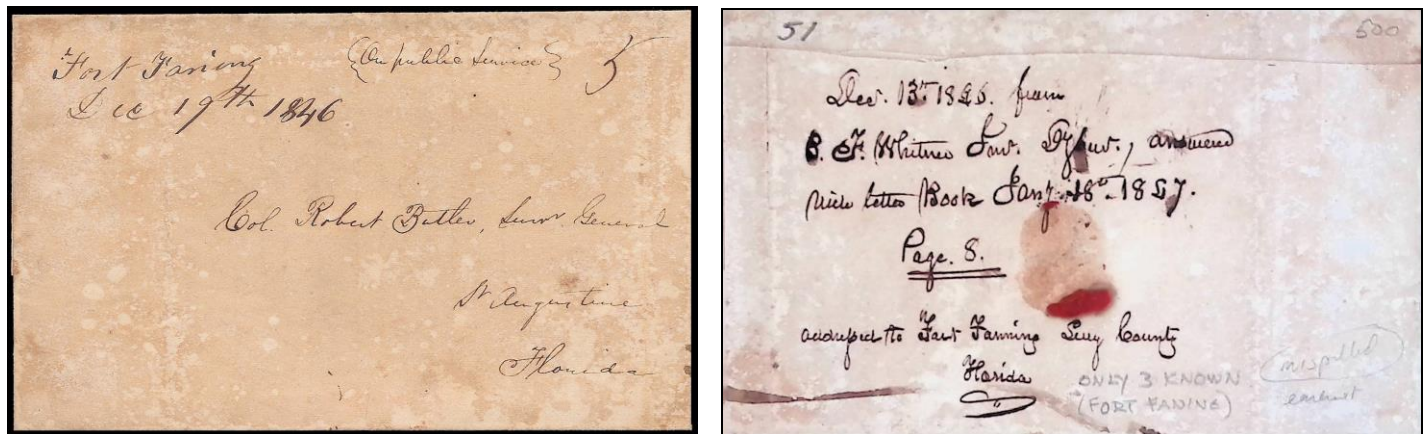 Fort Faning
Dec 19th 1846
(On public Service)
5
Col. Robert Butler, Survr. General
St Augustine
Florida
51
500
Dec. 13th 1846. from
B. F. Whitner Sur. Dy answered
vide letter Book Jany. 18th. 1847.
Page. 8.
addressed to Fort Fanning Levy County
Florida
ONLY 3 KNOWN
(FORT FANING)
misspelled
earliest